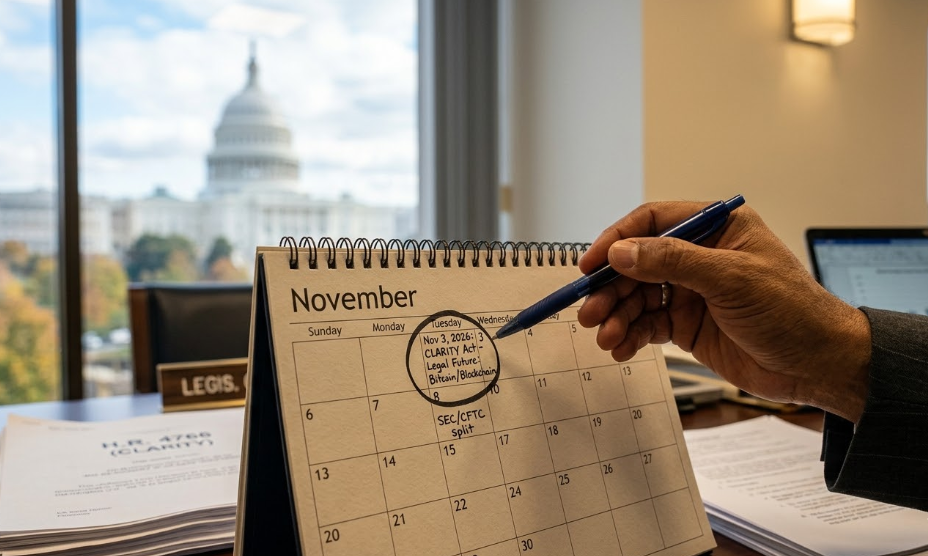 November
Sunday Monday Tuesday Wednesday
Nov 3, 2026: 3 4 5
CLARITY Act -
Legal Future:
Bitcain/Blockchain
6 7 8 10 11 12 13
SEC/CFTC
split
13 14 15 17 18 19 20
20 21 22 24 25 26 27
30
LEGIS.
H.R. 4766
(CLARITY)